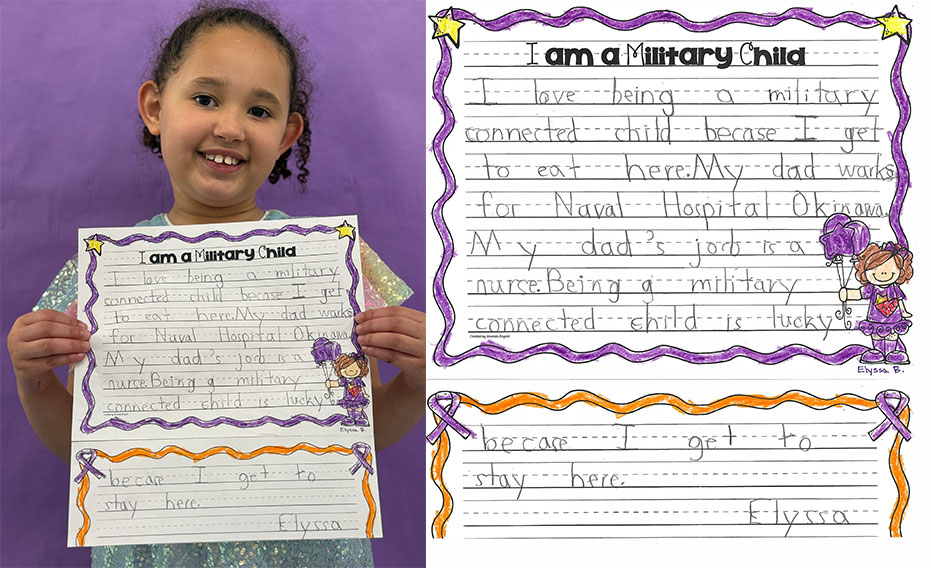 I am a Military Child
I love being a military
connected child becase I get
to eat here.My dad warks
for Naval Hospital Okinawa.
My dad's job is a
nurse.Being a military
connected child is lucky
Elyssa B.
becare I get to
stay here.
Elyssa
I am a Military Child
I love being a military
connected child becase I get
to eat here.My dad warks
for Naval Hospital Okinawa.
My dad's job is a
nurse.Being a military
connected child is lucky
Elyssa B.
becare I get to
stay here.
Elyssa